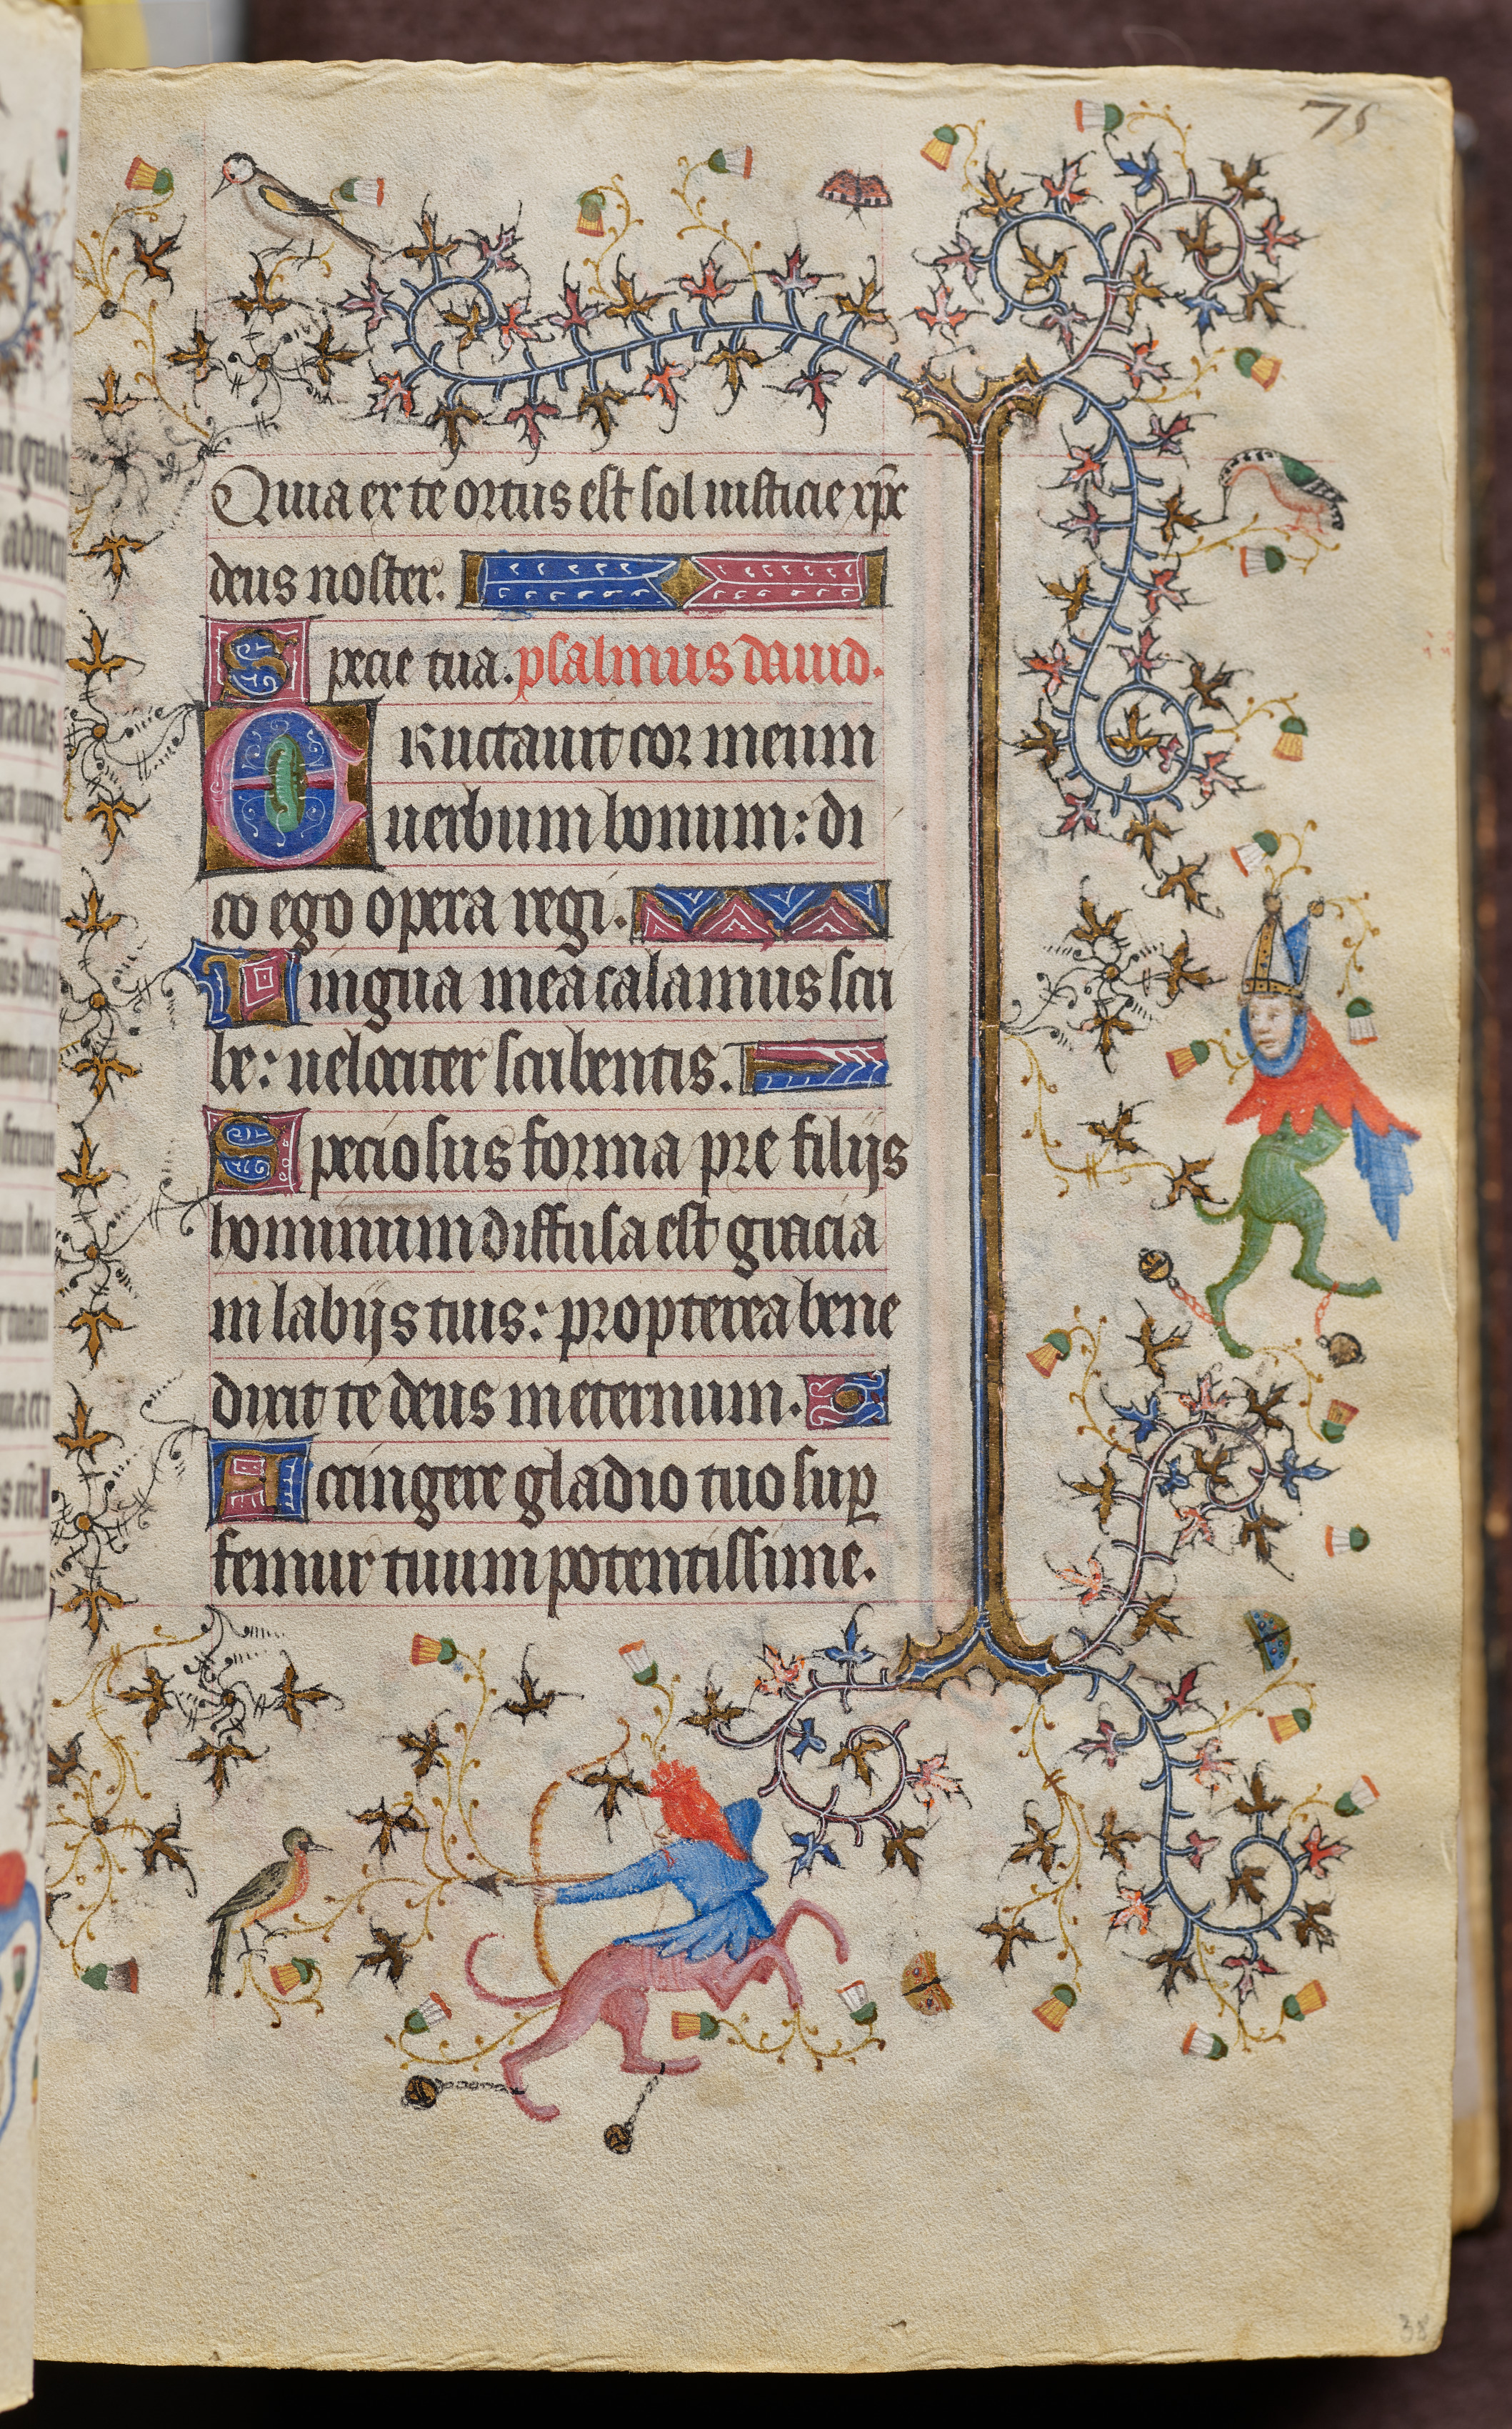 75
Quia ex te ortus est sol iusticie xp̄c
deus noster.
Specie tua. psalmus dauid.
Eructauit cor meum
uerbum bonum: di
co ego opera regi.
Lingua mea calamus scri
be: uelociter scribentis.
Speciosus forma pre filijs
hominum diffusa est gracia
in labijs tuis: propterea bene
dixit te deus in eternum.
Accingere gladio tuo suꝑ
femur tuum potentissime.
38